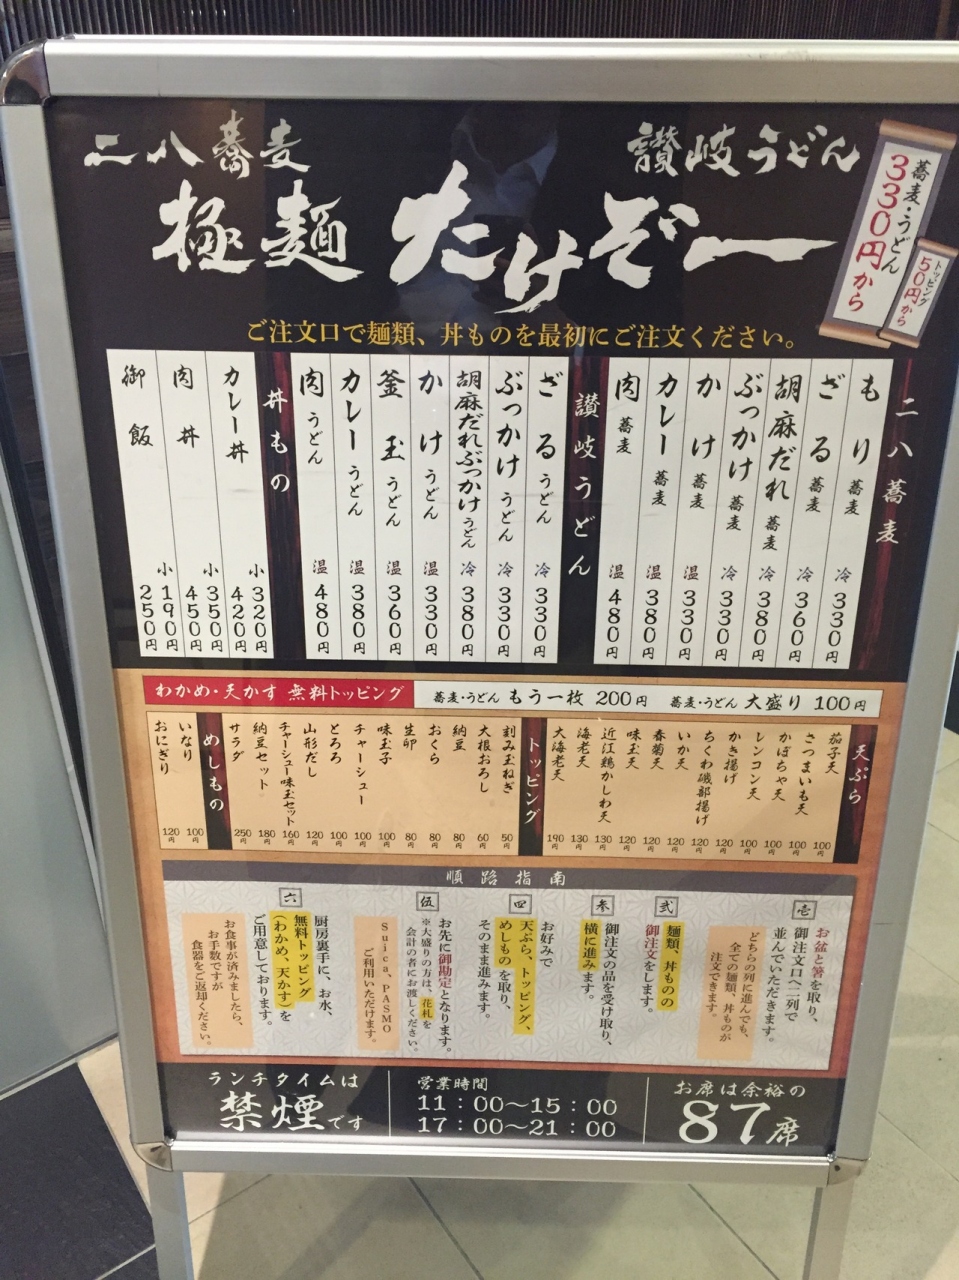 二八蕎麦
讃岐うどん
極麺 たけぞー
蕎麦・うどん
330円から
トッピング
50円から
ご注文口で麺類、丼ものを最初にご注文ください。
二八蕎麦
もり蕎麦 冷 330円
ざる蕎麦 冷 360円
胡麻だれ蕎麦 冷 380円
ぶっかけ蕎麦 冷 330円
かけ蕎麦 温 330円
カレー蕎麦 温 380円
肉蕎麦 温 480円
讃岐うどん
ざるうどん 冷 330円
ぶっかけうどん 冷 330円
胡麻だれぶっかけうどん 冷 380円
かけうどん 温 330円
釜玉うどん 温 360円
カレーうどん 温 380円
肉うどん 温 480円
丼もの
カレー丼 小 320円 420円
肉丼 小 350円 450円
御飯 小 190円 250円
わかめ・天かす 無料トッピング
蕎麦・うどん もう一枚 200円
蕎麦・うどん 大盛り 100円
天ぷら
茄子天 100円
さつまいも天 100円
かぼちゃ天 100円
レンコン天 100円
かき揚げ 120円
ちくわ磯部揚げ 120円
いか天 120円
春菊天 120円
味玉天 120円
近江鶏かしわ天 130円
海老天 130円
大海老天 190円
トッピング
刻み玉ねぎ 50円
大根おろし 60円
納豆 80円
おくら 80円
生卵 80円
味玉子 100円
チャーシュー 100円
とろろ 100円
山形だし 120円
チャーシュー味玉セット 160円
納豆セット 180円
サラダ 250円
めしもの
いなり 100円
おにぎり 120円
順路指南
壱
お盆と箸を取り、
御注文口へ二列で
並んでいただきます。
どちらの列に進んでも、
全ての麺類、丼ものが
注文できます。
弐
麺類、丼ものの
御注文をします。
参
御注文の品を受け取り、
横に進みます。
四
お好みで
天ぷら、トッピング、
めしものを取り、
そのまま進みます。
伍
お先に御勘定となります。
※大盛りの方は、花札を
会計の者にお渡しください。
Suica、PASMO
ご利用いただけます。
六
厨房裏手に、お水、
無料トッピング
(わかめ、天かす)を
ご用意しております。
お食事が済みましたら、
お手数ですが
食器をご返却ください。
ランチタイムは
禁煙です
営業時間
11：00〜15：00
17：00〜21：00
お席は余裕の
87席